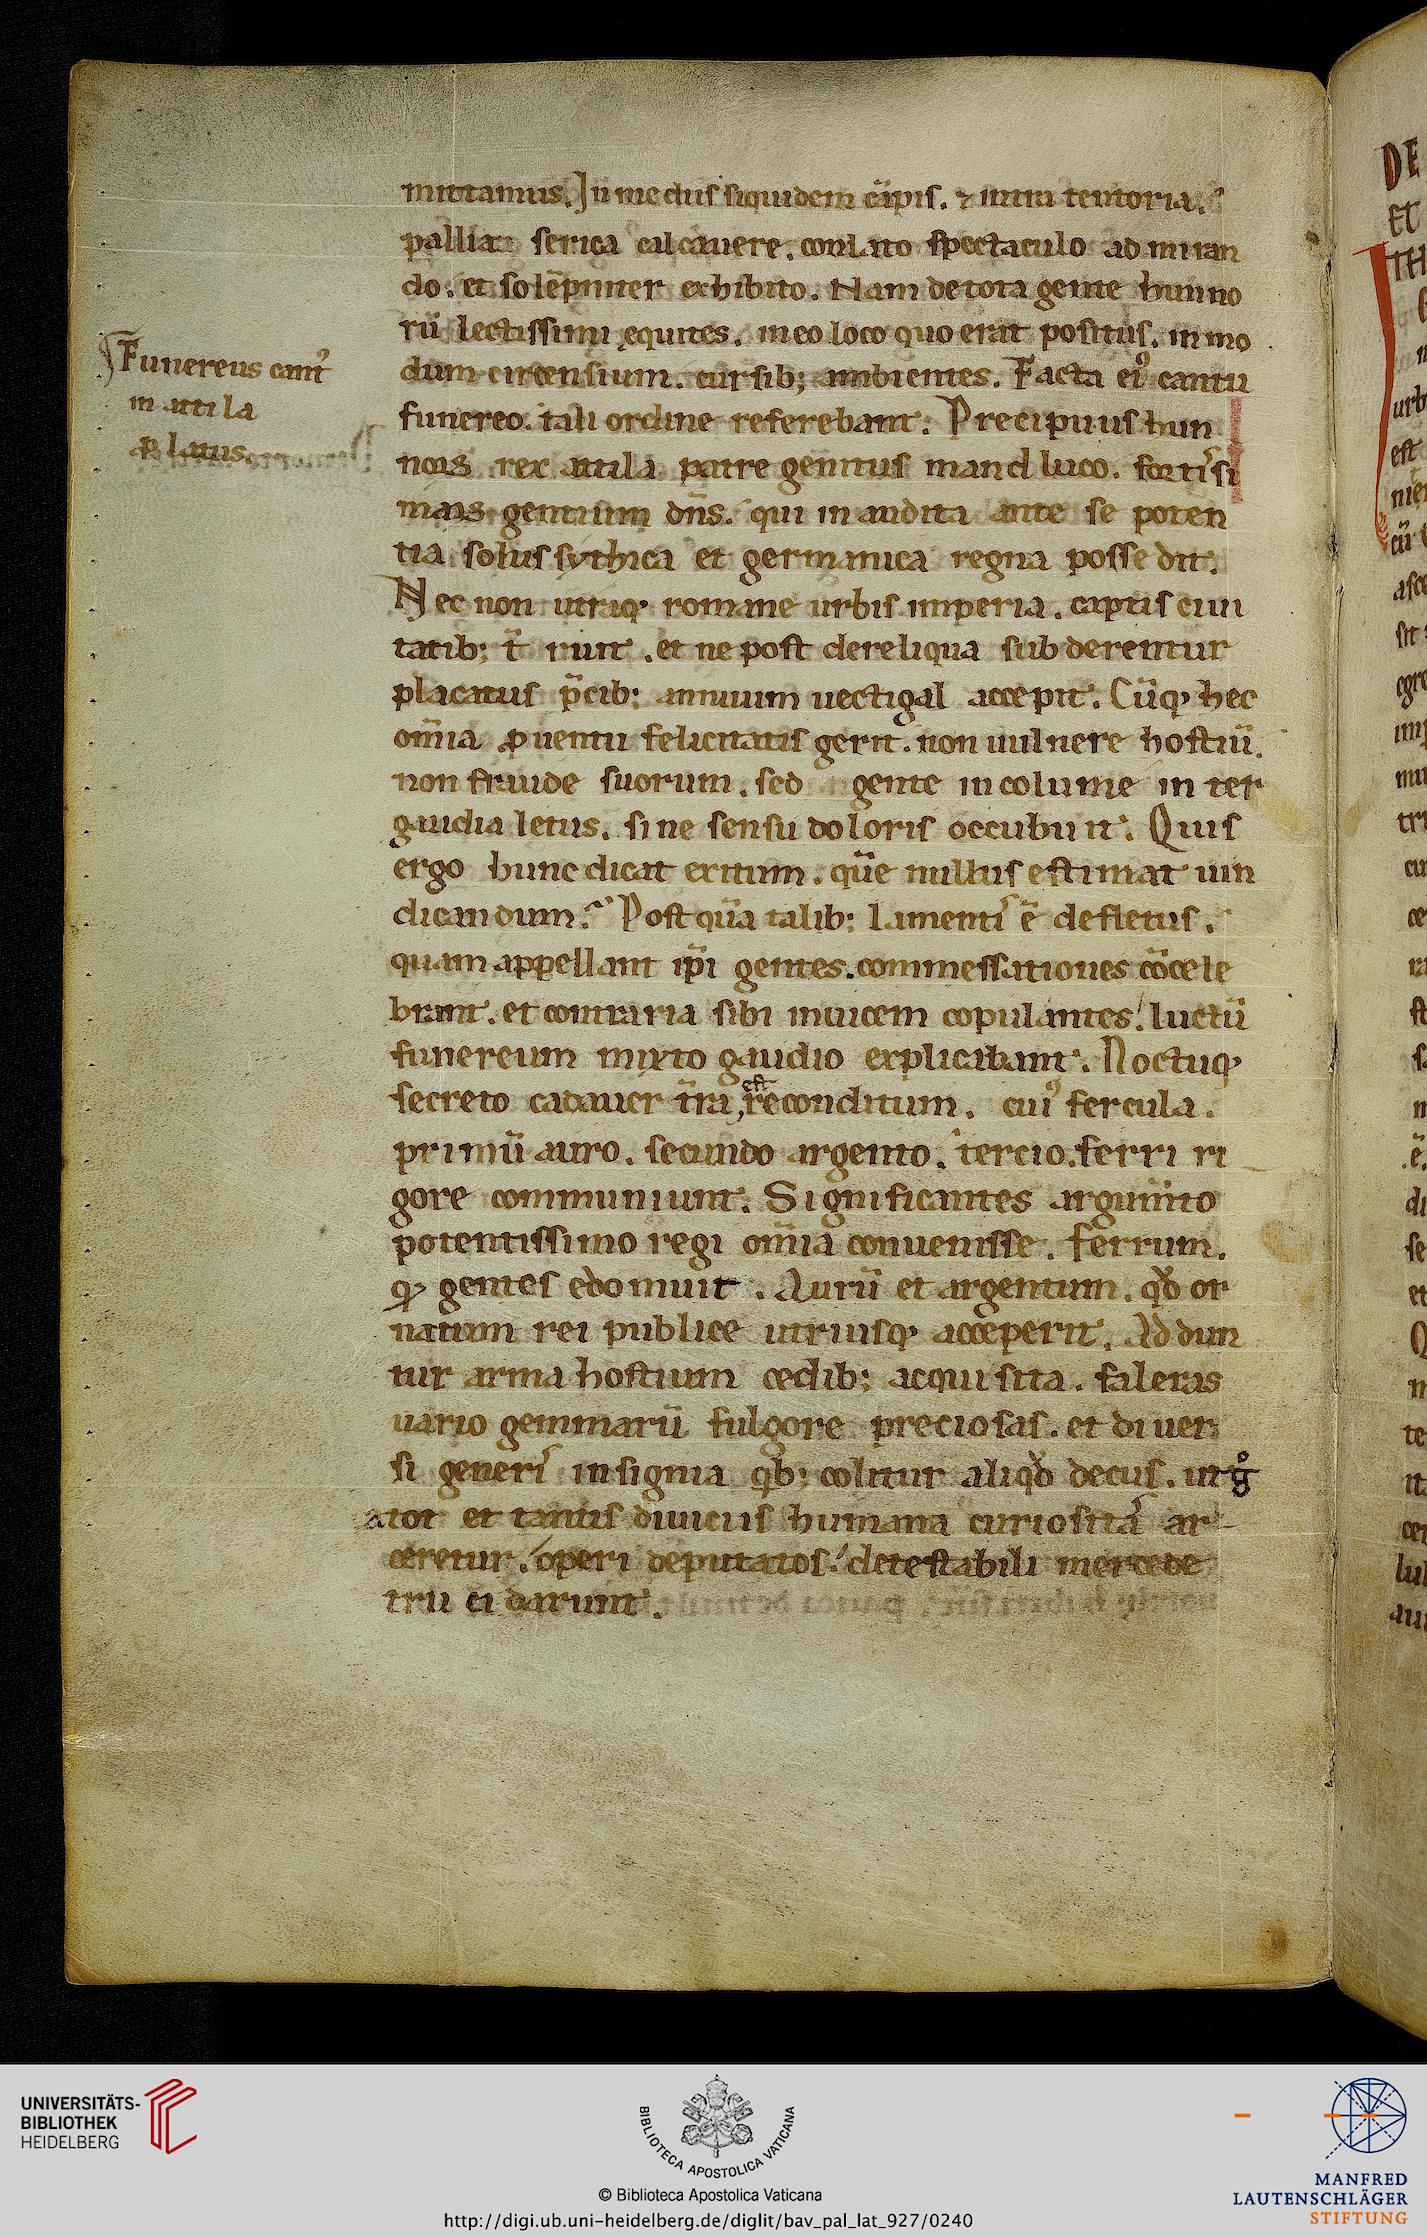 mittamus. In mediis siquidem cãpis. ⁊ intra tentoria.
pallia serica calcauere. conlato spectaculo admiran
do. et solẽpniter exhibito. Nam detota gente hunno
rũ lectissimi equites. ineo loco quo erat positus. inmo
dum circensium. cursib; ambientes. Facta eiꝰ cantu
funereo. tali ordine referebant. Precipuus hun
norum rex attila patre genitus mandluco. fortissi
marum gentium dñs. qui inaudita ante se poten
tia solus sythica et germanica regna possedit.
Nec non utraqꝫ romane urbis imperia. captis ciui
tatib; t̃ ruit. et ne post dereliqua subderentur
placatus p̃cib; annuum uectigal accepit. Cũqꝫ hec
om̃ia ꝓuentu felicitatis gerit. non uulnere hostiũ.
non fraude suorum. sed gente incolume inter
gaudia letus. sine sensu doloris occubuit. Quis
ergo hunc dicat exitum. quẽ nullus estimat uin
dicandum? Postquã talib; lamentis ẽ defletus.
quam appellant ip̃i gentes. commessationes cõcele
brant. et contraria sibi inuicem copulantes. luctũ
funereum mixto gaudio explicabant. Noctuqꝫ
secreto cadauer t̃ra est reconditum. cuiꝰ fercula.
primũ auro. secundo argento. tercio. ferri ri
gore communiunt. Significantes argum̃to
potentissimo regi om̃ia conuenisse. ferrum.
qꝫ gentes edomuit. Aurũ et argentum. qđ or
natum rei publice utriusqꝫ acceperit. Addun
tur arma hostium cedib; acquisita. faleras
uario gemmarũ fulgore preciosas. et diuer
si generis insignia qb; colitur aliqđ decus. ut gͦ
a tot et tantis diuiciis humana curiositas ar-
ceretur. operi deputatos. detestabili mercede
trucidarunt.
Funereus cantꝰ
in attila
ꝓlatus.
DE
ET
TH
urb
est
cũ
UNIVERSITÄTS-
BIBLIOTHEK
HEIDELBERG
BIBLIOTECA APOSTOLICA VATICANA
© Biblioteca Apostolica Vaticana
http://digi.ub.uni-heidelberg.de/diglit/bav_pal_lat_927/0240
MANFRED
LAUTENSCHLÄGER
STIFTUNG